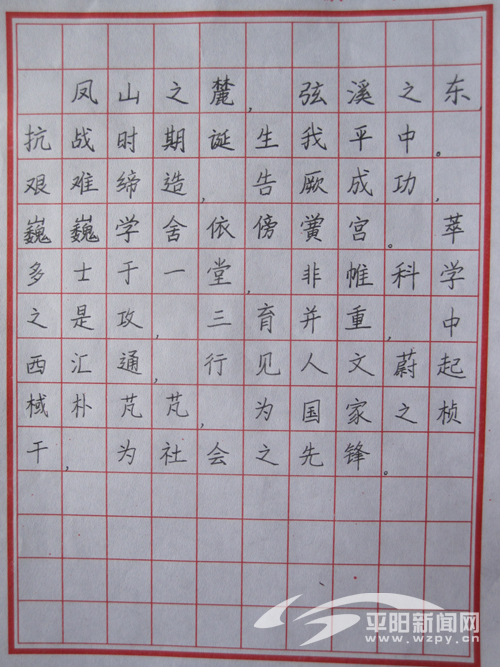 凤山之麓，弦溪之东
抗战时期诞生我平中。
艰难缔造，告厥成功，
巍巍学舍依傍黉宫。萃
多士于一堂，非帷科学
之是攻，三育并重，中
西汇通，行见人文蔚起
棫朴芃芃，为国家之桢
干，为社会之先锋。
平阳新闻网
www.wzpy.cn